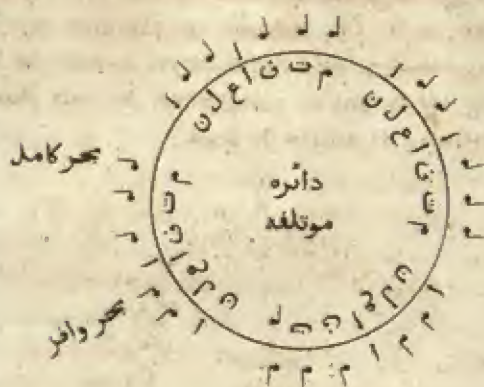 دائره
موتلفه
بحر كامل
بحر وافر
م ت ف ا ع ل ن
م ت ف ا ع ل ن
م ت ف ا ع ل ن
م ت ف ا ع ل ن